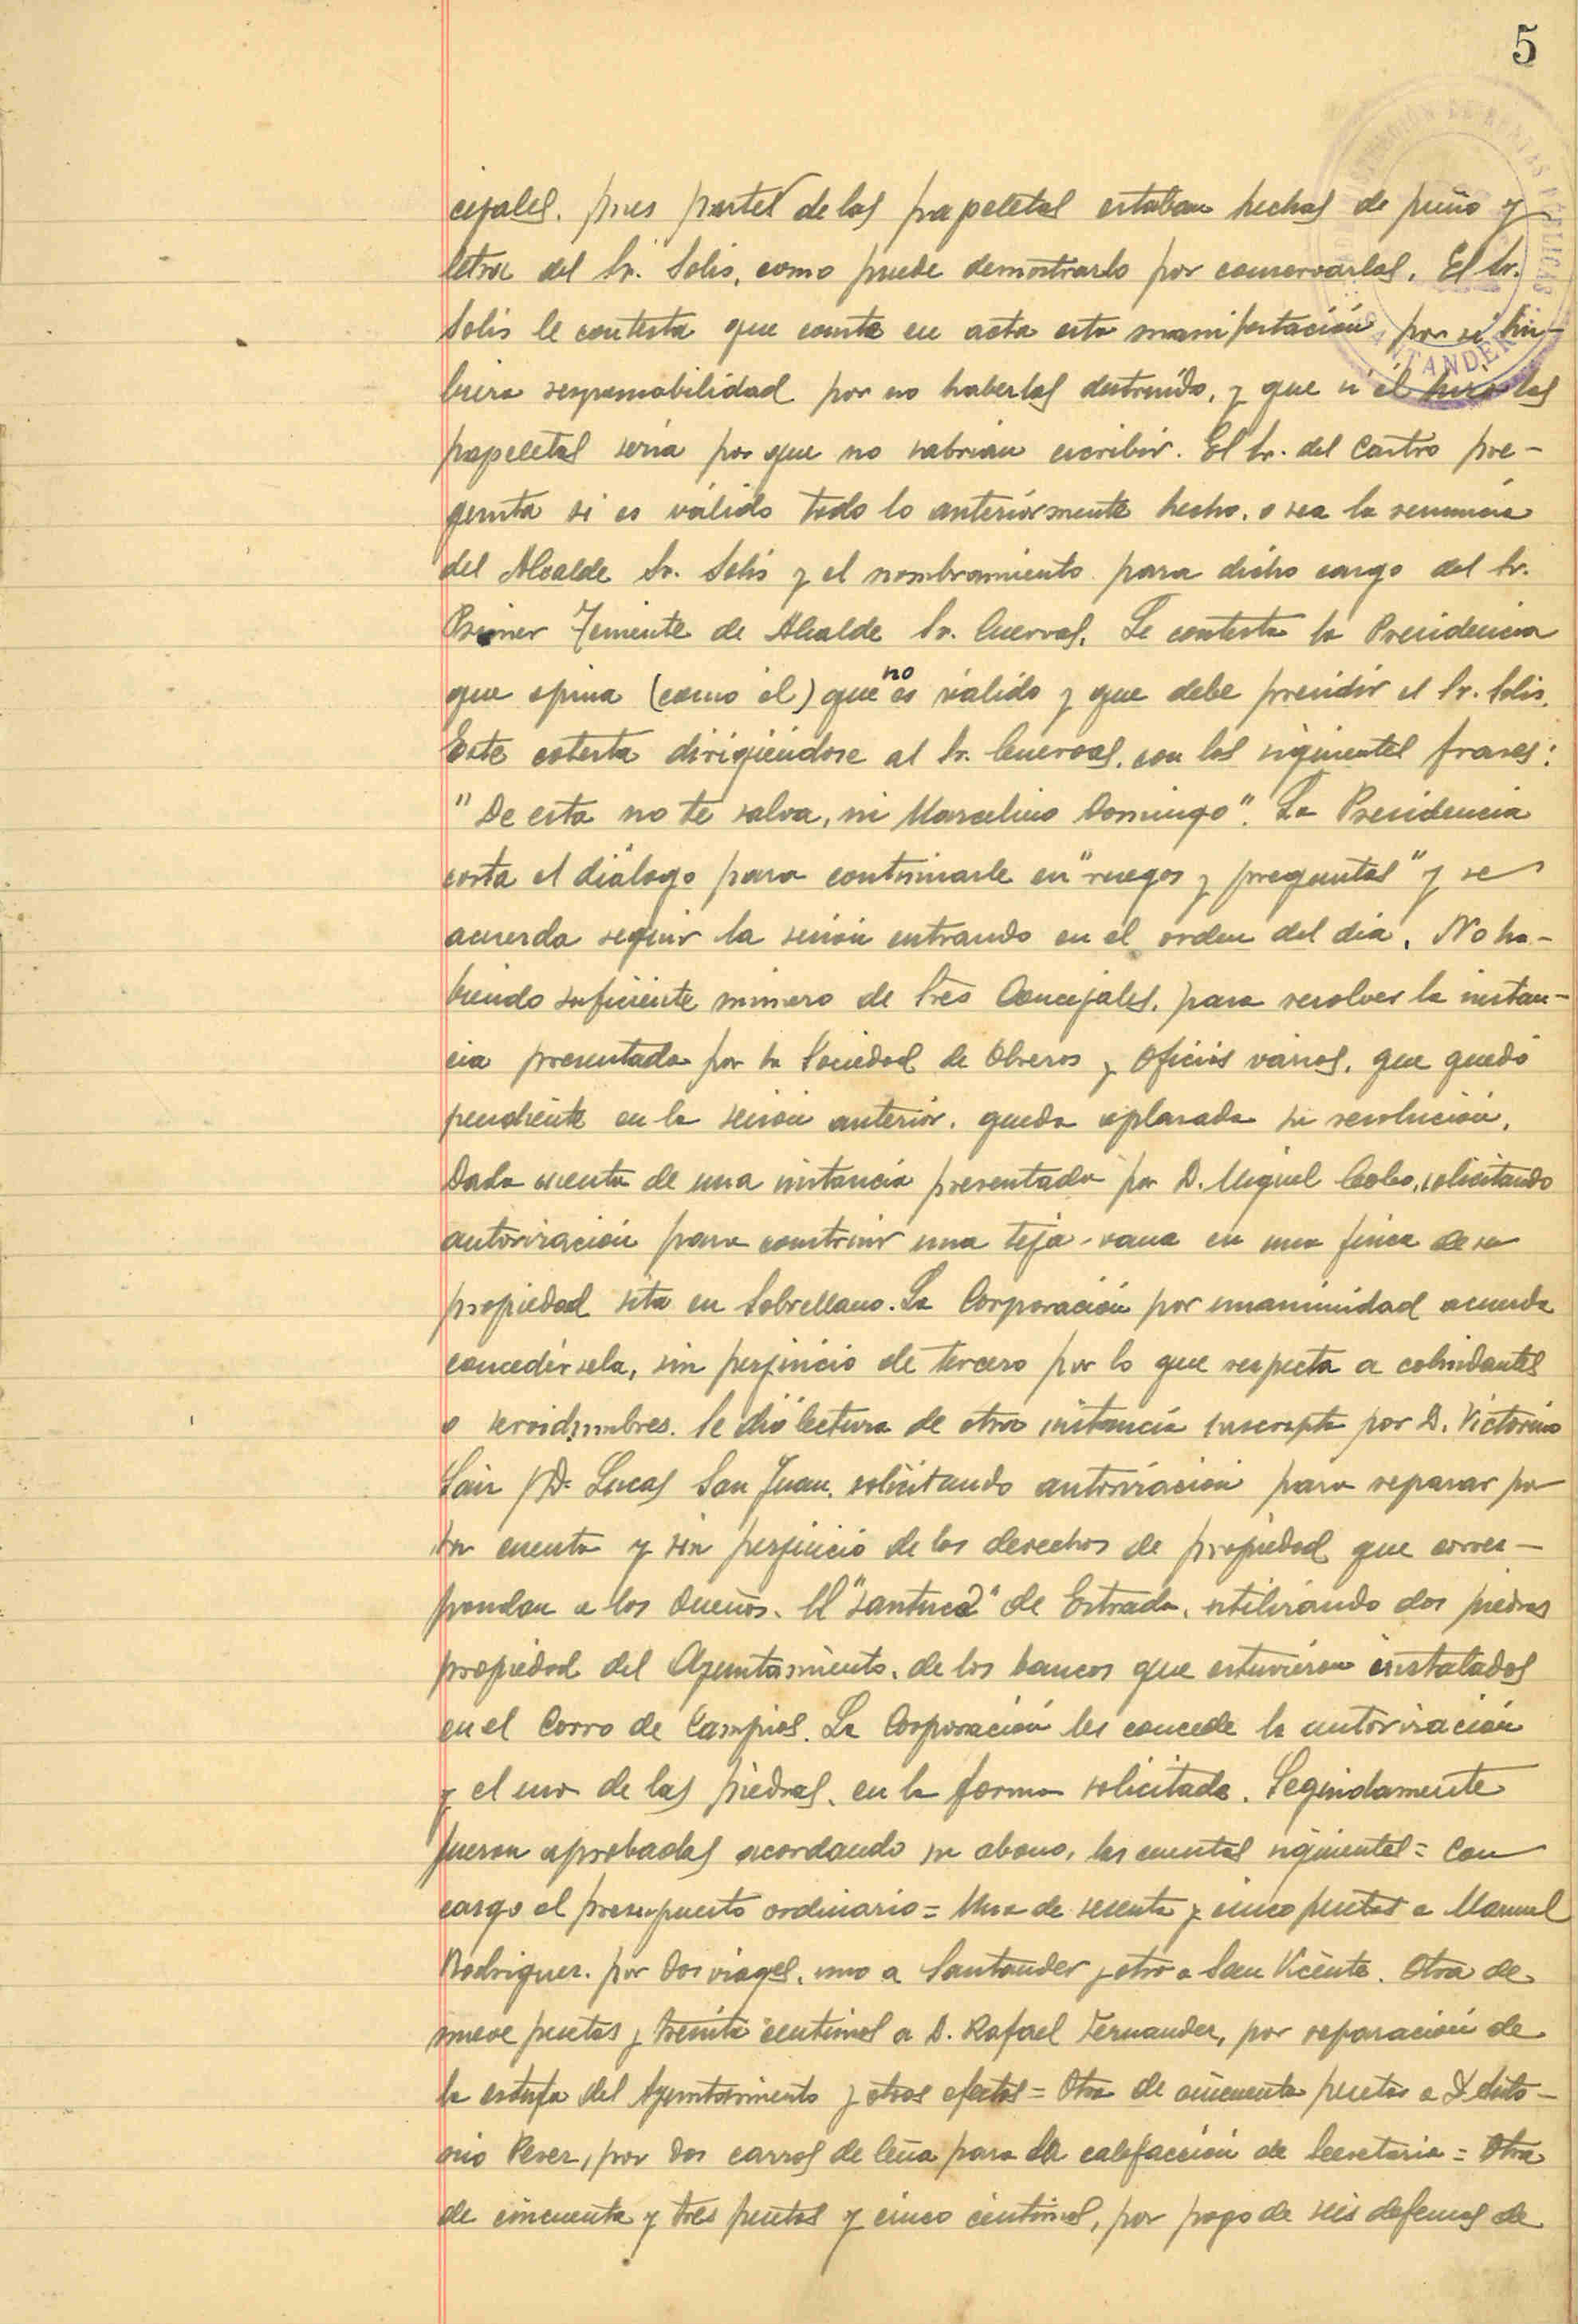 5
cejales. pues partes de las papeletas estaban hechas de puño y
letra del Sr. Solis, como puede demostrarlo por conservarlas. El Sr.
Solis le contesta que conste en acta esta manifestación, por si hu-
biera responsabilidad por no haberlas destruido, y que si él hizo las
papeletas sería por que no sabrían escribir. El Sr. del Castro pre-
gunta si es válido todo lo anteriormente hecho, o sea la renuncia
del Alcalde Sr. Solis y el nombramiento para dicho cargo del Sr.
Primer Teniente de Alcalde Sr. Cuervas. Le contesta la Presidencia
que opina (como él) que no es válido y que debe presidir el Sr. Solis.
Este cotesta dirigiéndose al Sr. Cuervas, con las siguientes frases:
"De esta no te salva, ni Marcelino Domingo". La Presidencia
corta el diálogo para continuarle en "ruegos y preguntas" y se
acuerda seguir la sesión entrando en el orden del día. No ha-
biendo suficiente número de Sres Concejales, para resolver la instan-
cia presentada por la Sociedad de Obreros y Oficios varios, que quedó
pendiente en la sesión anterior, queda aplazada su resolución.
Dada cuenta de una instancia presentada por D. Miguel Cobo, solicitando
autorización para construir una teja-vana en una finca de su
propiedad sita en Sobrellano. La Corporación por unanimidad acuerda
concedérsela, sin perjuicio de tercero por lo que respecta a colindantes
o servidumbres. Se dió lectura de otra instancia suscripta por D. Victorino
Sáiz y D. Lucas San Juan, solicitando autorización para reparar por
su cuenta y sin perjuicio de los derechos de propiedad que corres-
pondan a los dueños, el "santuca" de Estrada, utilizando dos piedras
propiedad del Ayuntamiento, de los bancos que estuvieron instalados
en el Corro de Campios. La Corporación les concede la autorización
y el uso de las piedras, en la forma solicitada. Seguidamente
fueron aprobadas acordando su abono, las cuentas siguientes = Con
cargo al presupuesto ordinario = Una de sesenta y cinco pesetas a Manuel
Rodriguez, por dos viages, uno a Santander y otro a San Vicente. Otra de
nueve pesetas y treinta centimos a D. Rafael Fernandez, por reparación de
la estufa del Ayuntamiento y otros efectos = Otra de cincuenta pesetas a D Anto-
nio Perez, por dos carros de leña para la calefacción de Secretaria = Otra
de cincuenta y tres pesetas y cinco centimos, por pago de seis defensas de
SANTANDER